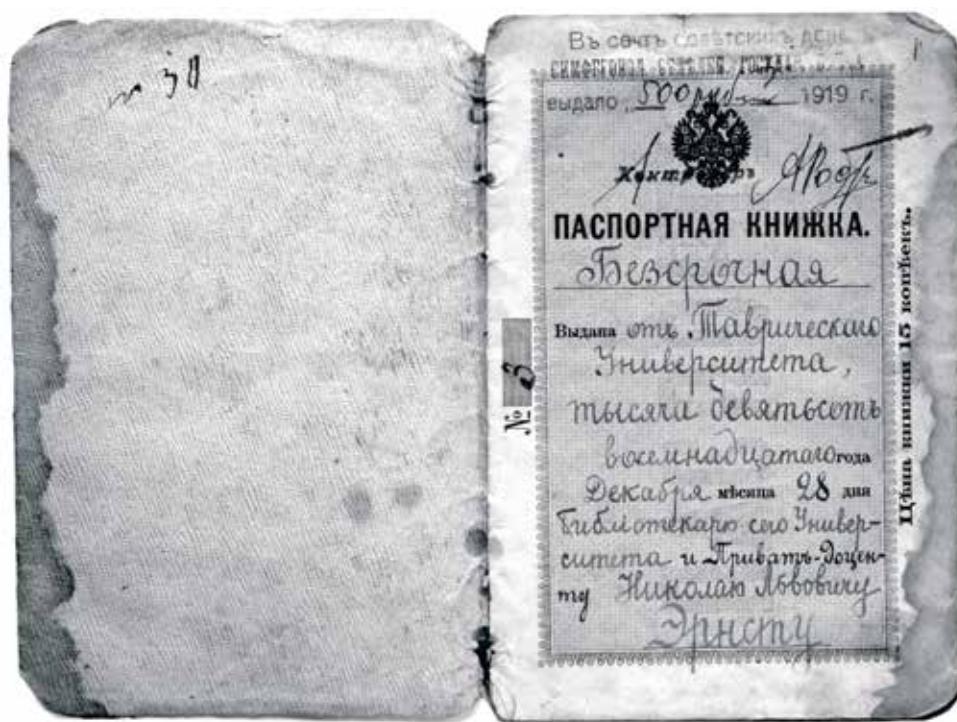 Въ счетъ советскихъ
выдало „ 500 руб 1919 г.
Контролеръ
ПАСПОРТНАЯ КНИЖКА.
Безсрочная
Выдана отъ Таврическаго
Университета,
тысяча девятьсотъ
восемнадцатаго года
Декабря мѣсяца 28 дня
библіотекарю сего Универ-
ситета и Приватъ-Доцен-
ту Николаю Львовичу
Эрнсту
№ 3
Цѣна книжки 15 копѣекъ.